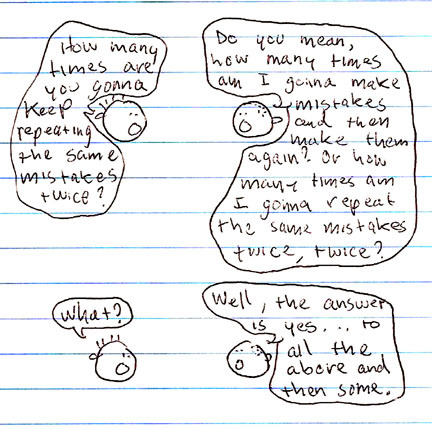 How many
times are
you gonna
keep
repeating
the same
mistakes
twice?
Do you mean,
how many times
am I gonna make
mistakes
and then
make them
again? Or how
many times am
I gonna repeat
the same mistakes
twice, twice?
What?
Well, the answer
is yes... to
all the
above and
then some.